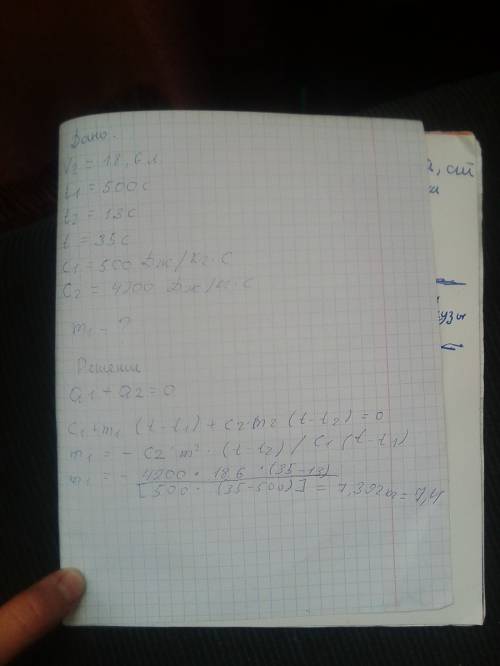 Дано:
V2 = 18,6 л
t1 = 500 с
t2 = 13 с
t = 35 с
C1 = 500 Дж/кг·С
C2 = 4200 Дж/кг·С
m1 - ?
Решение
Q1 + Q2 = 0
C1·m1 (t-t1) + C2·m2 (t-t2) = 0
m1 = - C2·m2·(t-t2) / C1 (t-t1)
m1 = - 4200 · 18,6 · (35-13)
[500 · (35-500)] = 7,392 кг = 7,4